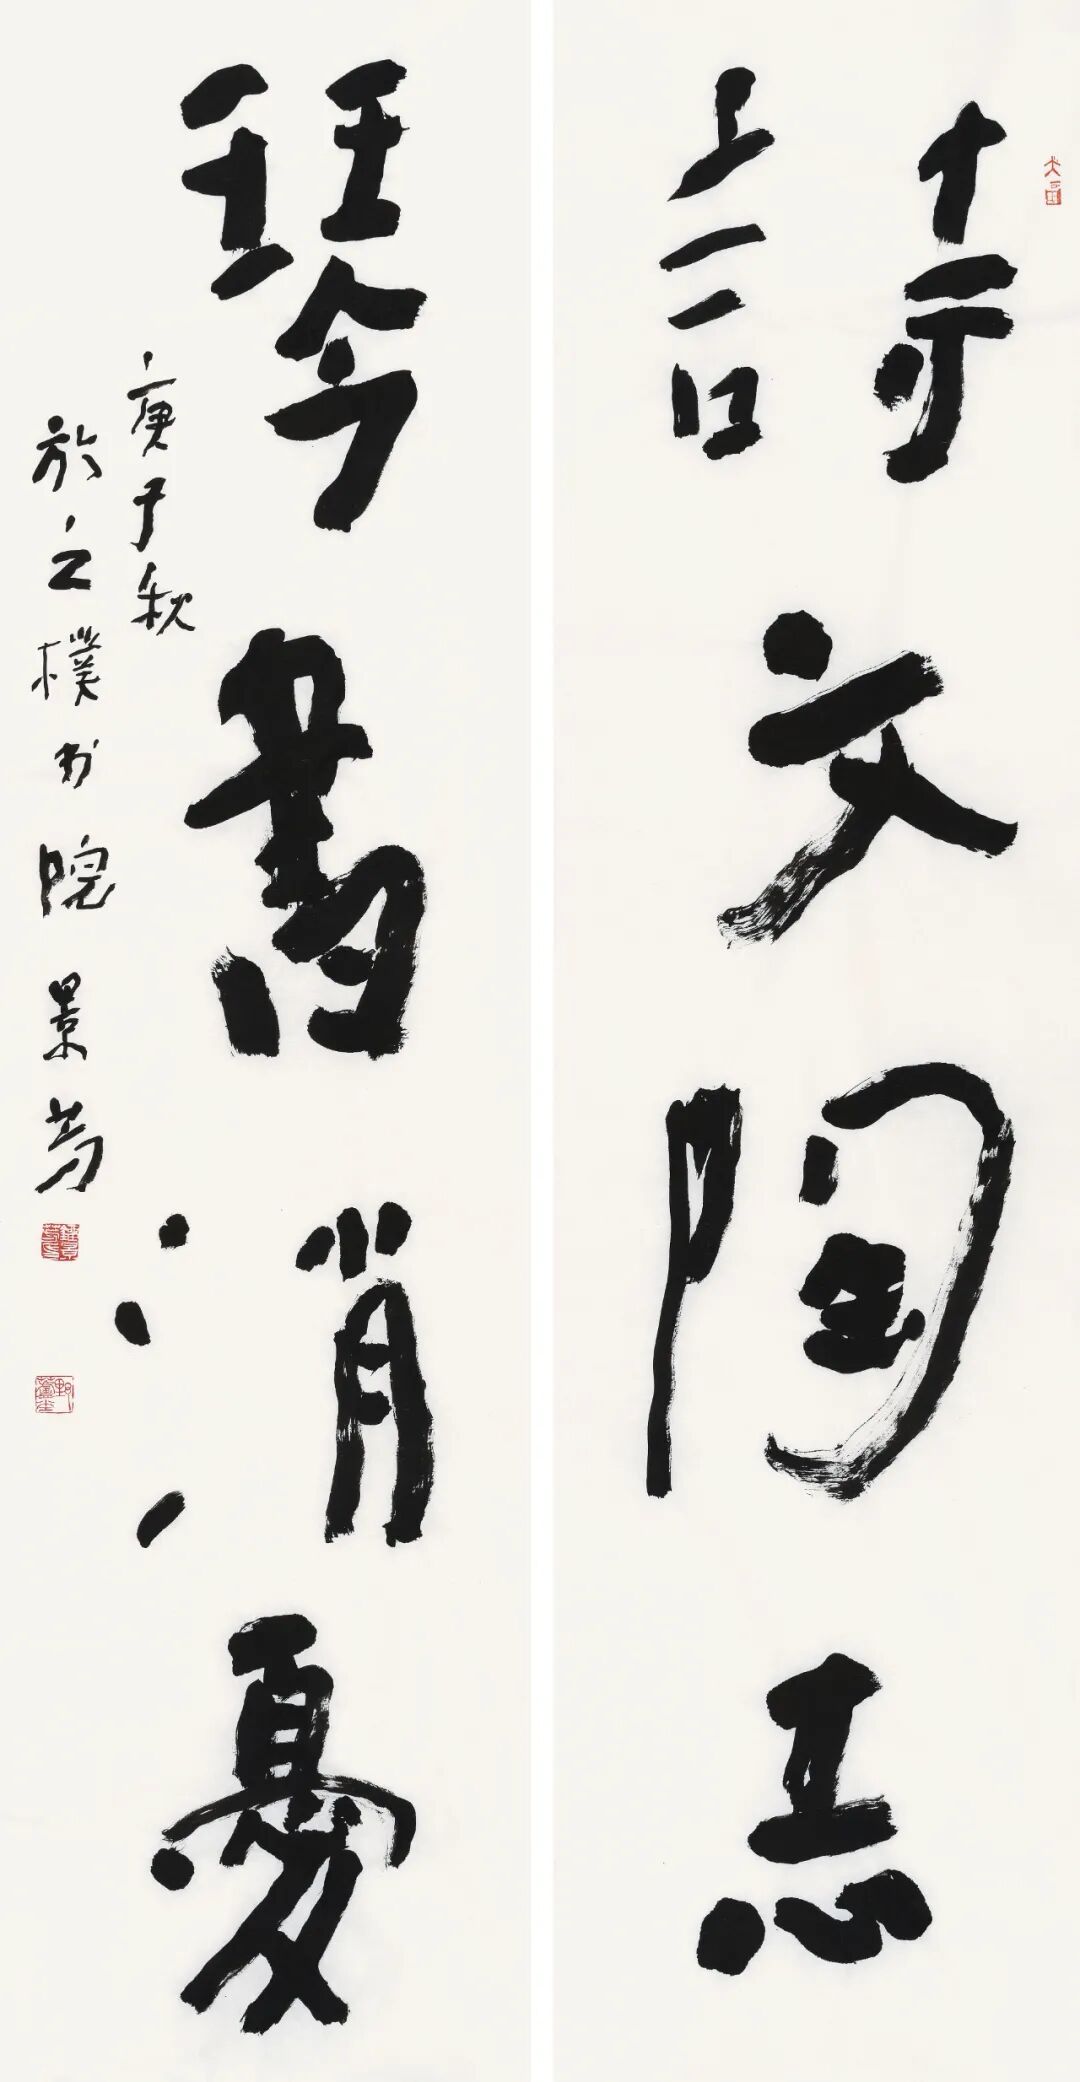 詩文陶志
琴書消憂
庚子秋
於之樸書院景芳